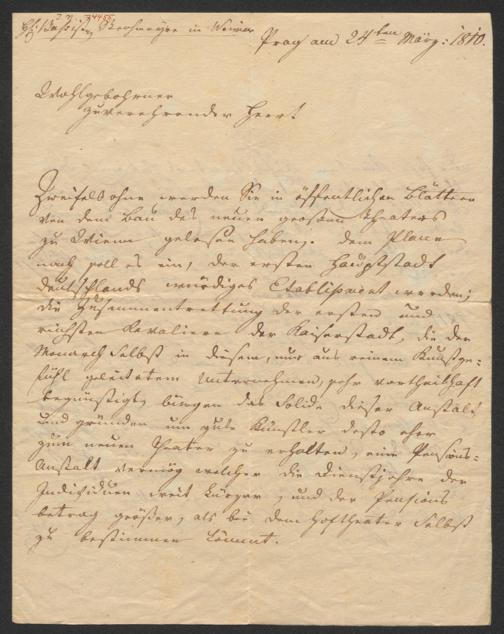 Stromeyer in Weimar
Prag am 24ten März: 1810.
Wohlgebohrner
zuverehrender Herr!
Zweifelsohne werden Sie in öffentlichen Blättern
von dem Bau des neuen grossen Theaters
zu Wienn gelesen haben. Dem Plane
nach soll es ein, der ersten Hauptstadt
Deutschlands würdiges Etablissment werden;
die Zusammentrettung der ersten und
reichsten Kavaliere der Kaiserstadt, die der
Monarch selbst in diesem, nur aus reinem Kunstge-
fühl geleitetem Unternehmen, sehr vortheilhaft
begünstigt, bürgen das Solide dieser Anstalt
und gründen um gute Künstler desto eher
zum neuen Theater zu erhalten, eine Pensions-
Anstalt vermög welcher die Dienstjahre der
Individuen weit kürzer, und der Pensions
betrag grösser, als bei dem Hoftheater selbst
zu bestimmen kömmt.